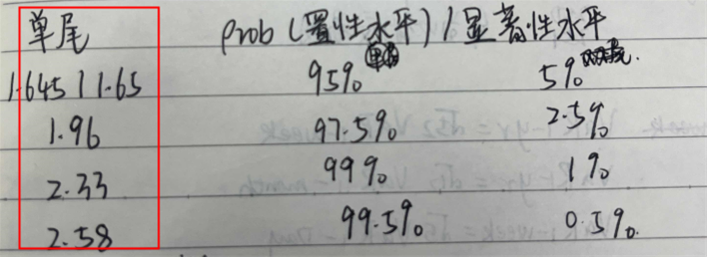 单尾 prob (置性水平) / 显著性水平
1.645 | 1.65 95% 5%
1.96 97.5% 2.5%
2.33 99% 1%
2.58 99.5% 0.5%